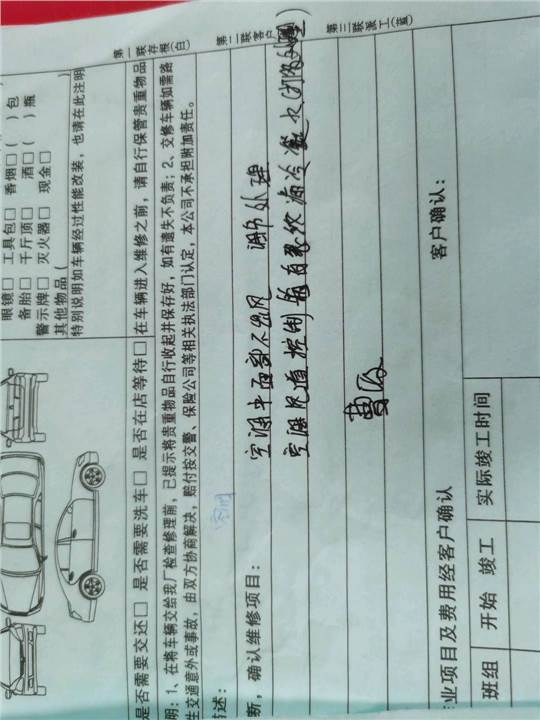 第一联存根(白)
第二联客户
第三联派工(蓝)
眼镜□ 工具包□ 香烟□( )包
备胎□ 千斤顶□ 酒□( )瓶
警示牌□ 灭火器□ 现金□
其他物品(
特别说明如车辆经过性能改装，也请在此注明
是否需要交还□ 是否需要洗车□ 是否在店等待□ 在车辆进入维修之前，请自行保管贵重物品
明：1、在将车辆交给我厂检查修理前，已提示将贵重物品自行收起并保存好，如有遗失不负责；2、交修车辆如需路
生交通意外或事故，由双方协商解决，赔付按交警、保险公司等相关执法部门认定，本公司不承担附加责任。
描述：
断，确认维修项目：
空调中面部不出风 调节处理
空调 控制
曹
业项目及费用经客户确认
客户确认：
班组 开始 竣工 实际竣工时间